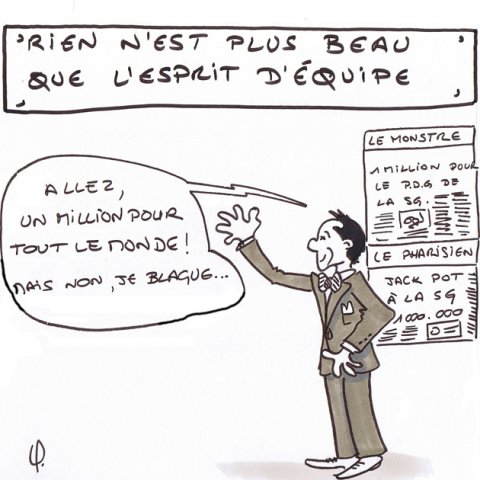 RIEN N'EST PLUS BEAU
QUE L'ESPRIT D'ÉQUIPE
ALLEZ,
UN MILLION POUR
TOUT LE MONDE!
MAIS NON, JE BLAGUE...
LE MONSTRE
1 MILLION POUR
LE P.D.G DE
LA SG.
LE PHARISIEN
JACK POT
À LA SG
1000.000